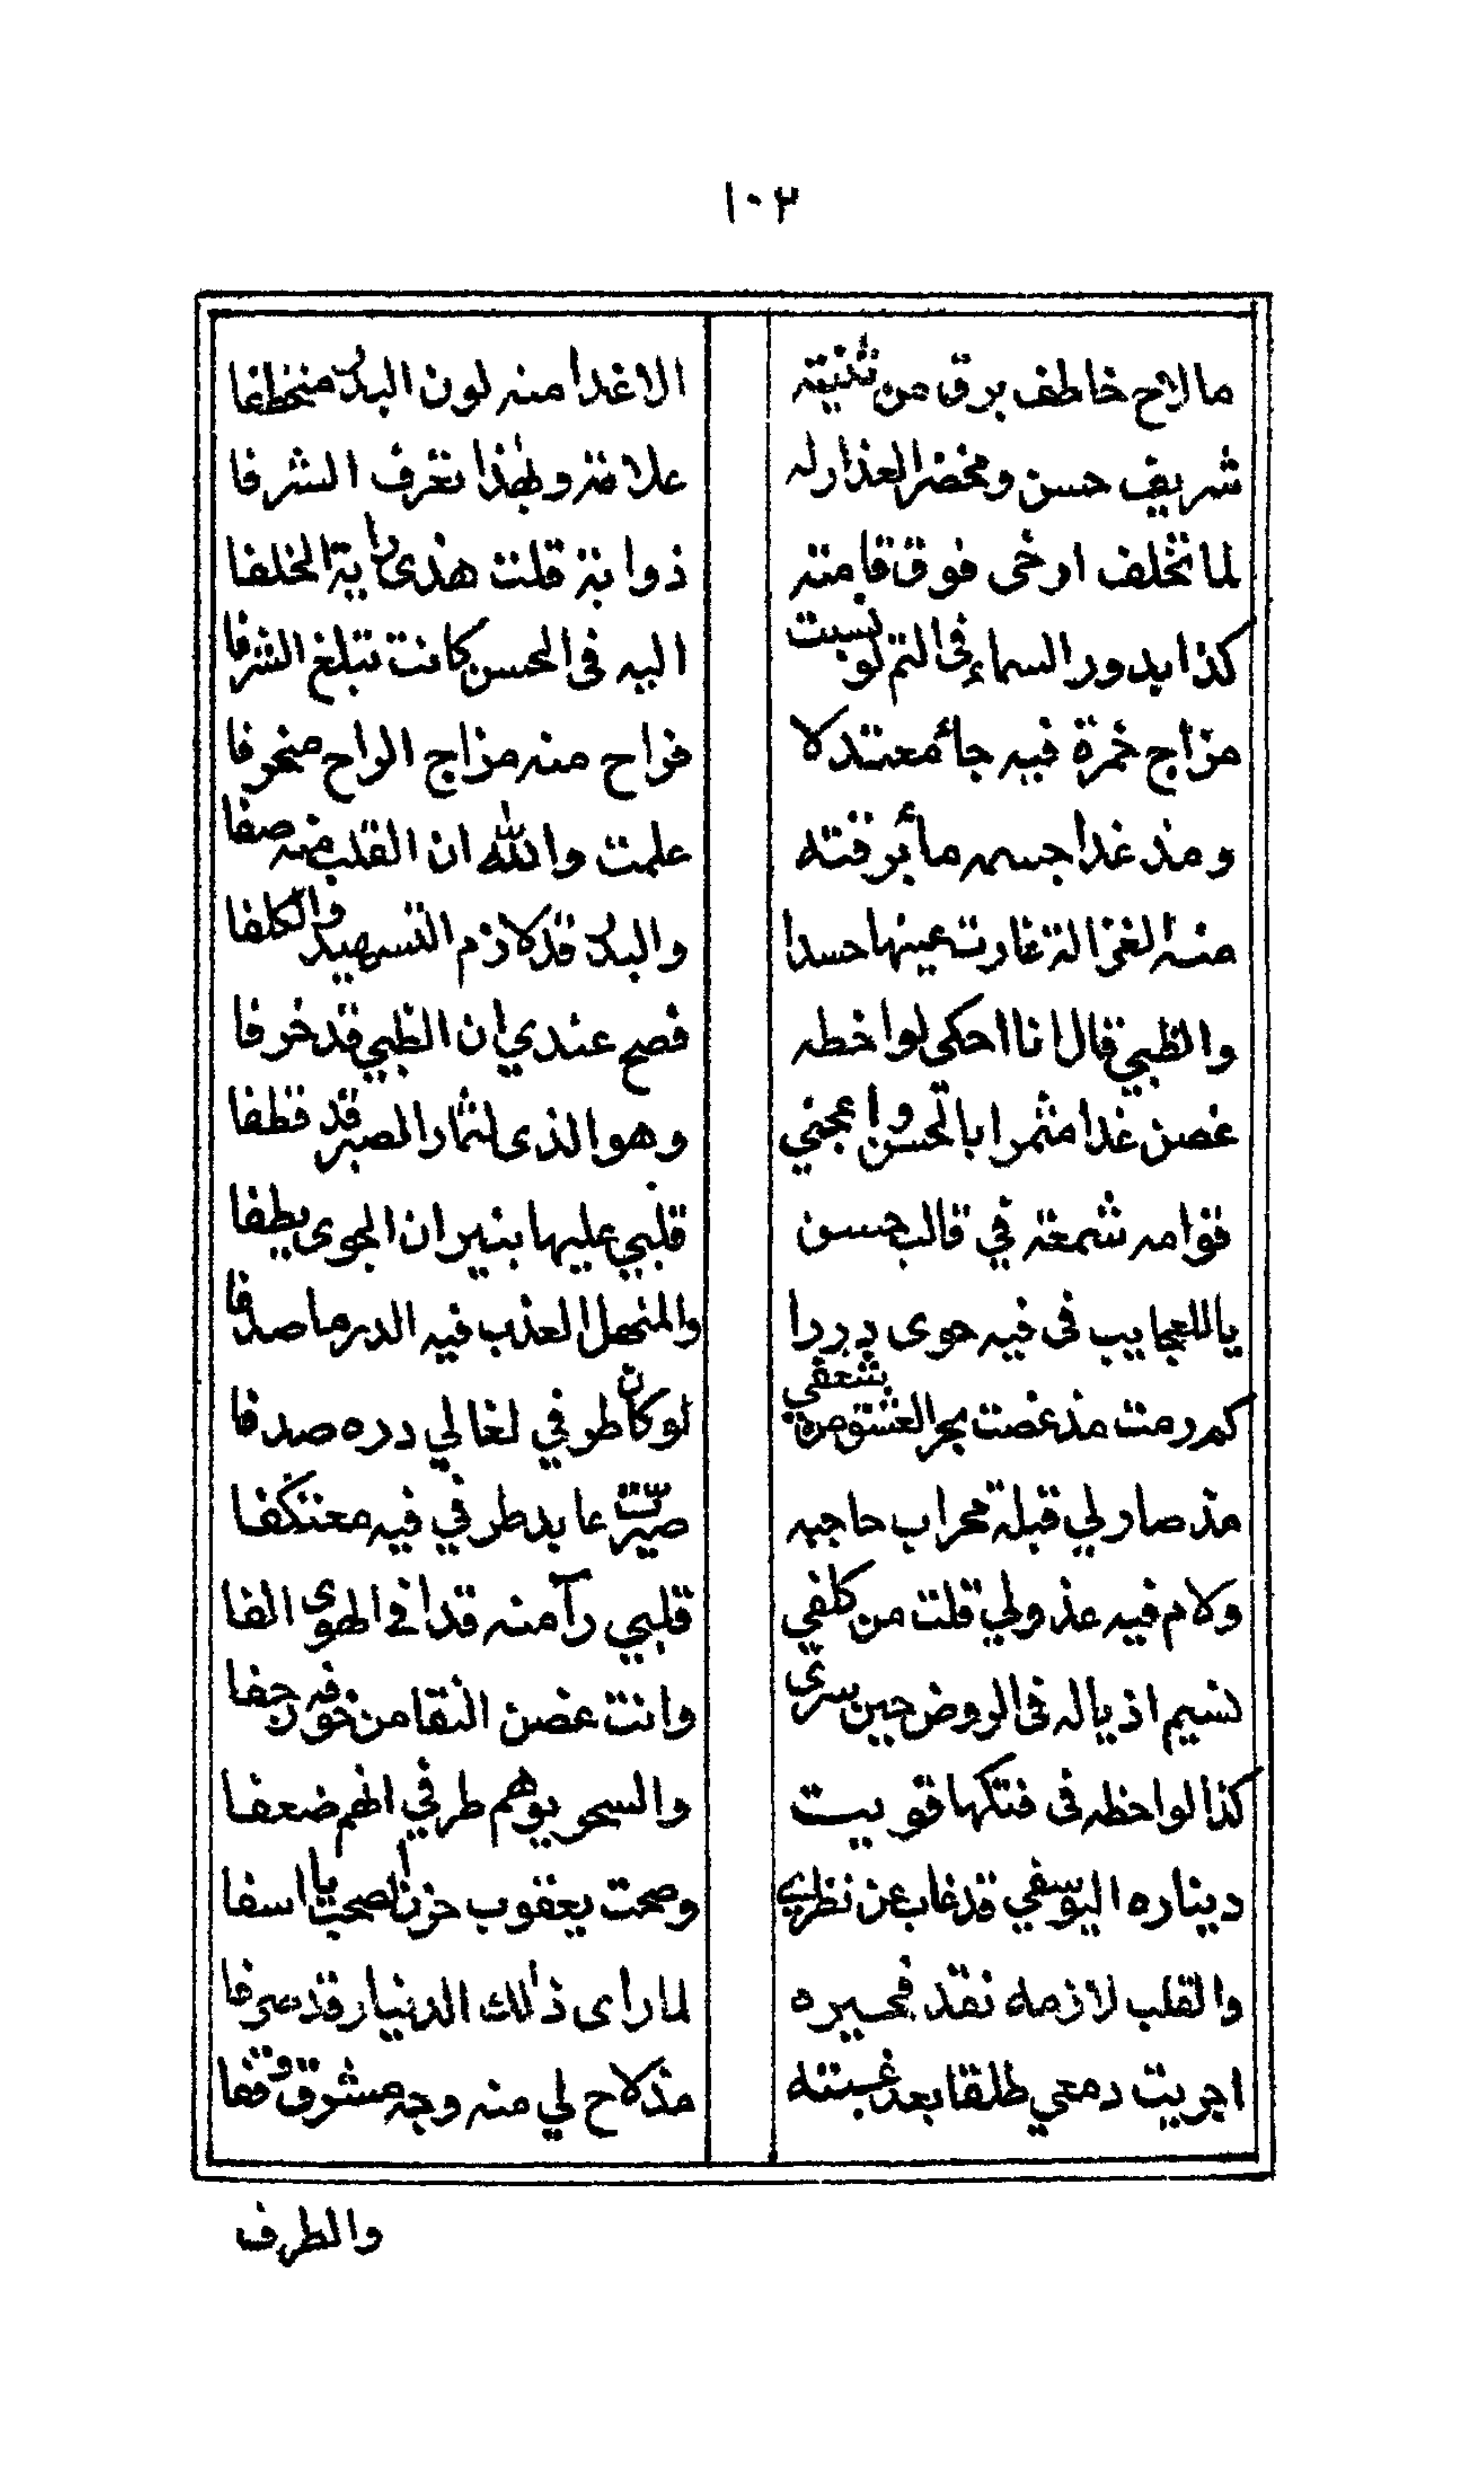 ١٠٢
مالاح خاطف برق من ثنيته الاغدا منه لون البدر منخطفا
شريف حسن ومخضر العذار له علامة وبهذا تعرف الشرفا
لما تخلف ارخى فوق قامته ذوابة قلت هذى راية الخلفا
كذا بدور السماء فى التم لو نسبت اليه فى الحسن كانت تبلغ الشرفا
مزاج خمرة فيه جاء معتدلا فراح منه مزاج الراح منحرفا
ومذ غدا جسمه ماء برقته علمت والله ان القلب منه صفا
منه الغزالة غارت عينها حسدا والبدر قد لازم التسهيد والكلفا
والظبي قال انا احكى لواخطه فصح عندي ان الظبي قد خرفا
غصن غدا مثمرا بالحسن واعجني وهو الذى لثمار الصبر قد قطفا
قوامه شمعة في قالب حسن قلبي عليها بنيران الجوى يطفا
ياللعجايب فى فيه حوى دررا والمنهل العذب فيه الدر ما صدفا
كم رمت مذ غصت بحر العشق من شعفي لو كان طرفي لغالي دره صدفا
مذ صار لي قبلة محراب حاجبه صيّرت عابد طرفي فيه معتكفا
ولام فيه عذولي قلت من كلفي قلبي رآ منه قدا في الهوى الفا
نسيم اذياله فى الروض حين سرى وانت غصن النقا من خوفه رجفا
كذا لواخظه فى فتكها قويت والسحر يوهم طرفي انهم ضعفا
ديناره اليوسفي قد غاب عن نظري وصحت يعقوب حزنا صحت يا اسفا
والقلب لازمه نقد فحسيره لما راى ذلك الدنيار قد صرفا
اجريت دمعي طلقا بعد غيبته مذ لاح لي منه وجه مشرق وقفا
والطرف